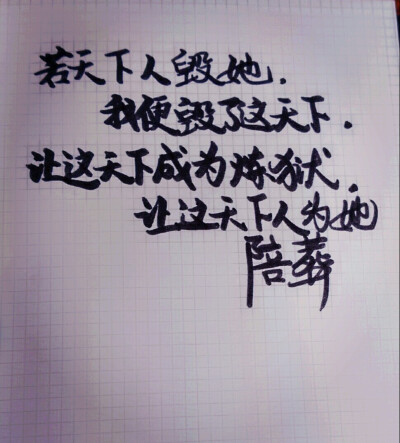 若天下人毁她.
我便毁了这天下.
让这天下成为炼狱.
让这天下人为她
陪葬